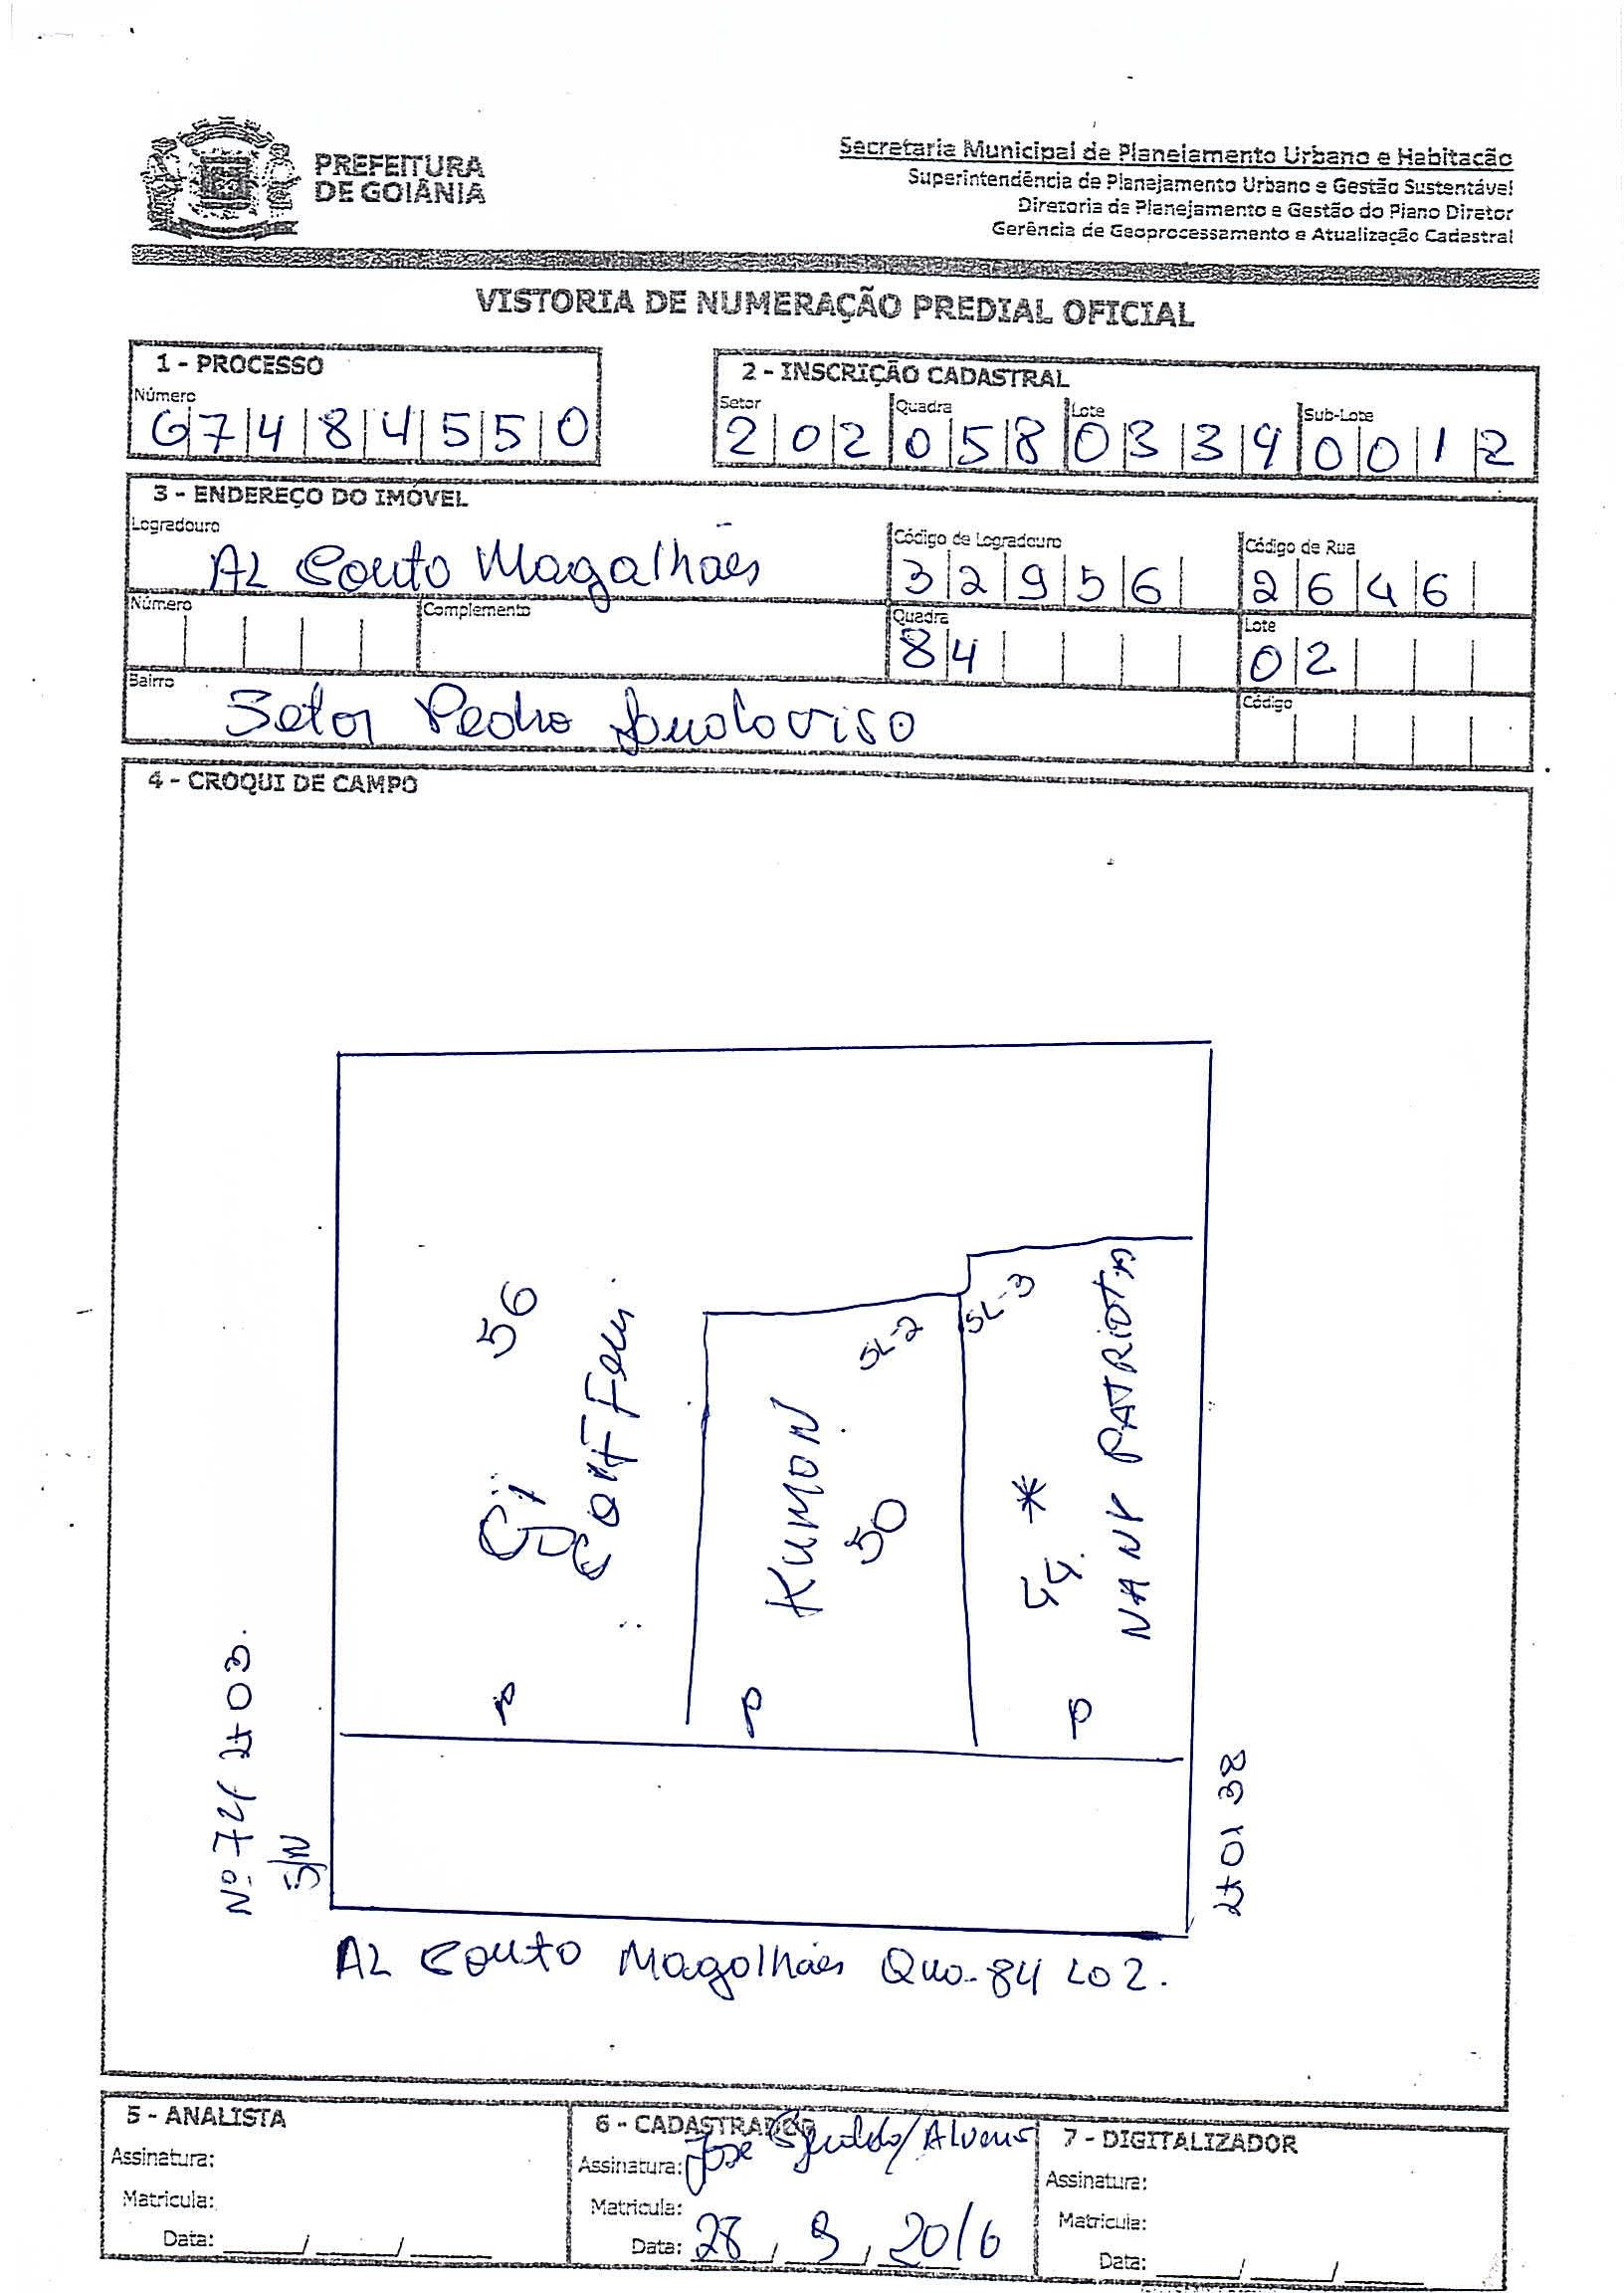 PREFEITURA
DE GOIÂNIA
Secretaria Municipal de Planejamento Urbano e Habitação
Superintendência de Planejamento Urbano e Gestão Sustentável
Diretoria de Planejamento e Gestão do Plano Diretor
Gerência de Geoprocessamento e Atualização Cadastral
VISTORIA DE NUMERAÇÃO PREDIAL OFICIAL
1 - PROCESSO
Número
67484550
2 - INSCRIÇÃO CADASTRAL
Setor Quadra Lote Sub-Lote
202 058 0339 0012
3 - ENDEREÇO DO IMÓVEL
Logradouro
AL Couto Magalhães
Código de Logradouro
32956
Código de Rua
2646
Número
Complemento
Quadra
84
Lote
02
Bairro
Setor Pedro
Código
4 - CROQUI DE CAMPO
56
SL-2
SL-3
KUMON
50
44 *
NANY PATRIOTA
P
P
P
Nº 74
S/N
AL Couto Magalhães Qua. 84 L02.
5 - ANALISTA
Assinatura:
Matricula:
Data: ____/____/____
6 - CADASTRADOR
Assinatura: Jose
Matricula:
Data: 28/9/2016
7 - DIGITALIZADOR
Assinatura:
Matricula:
Data: ____/____/____